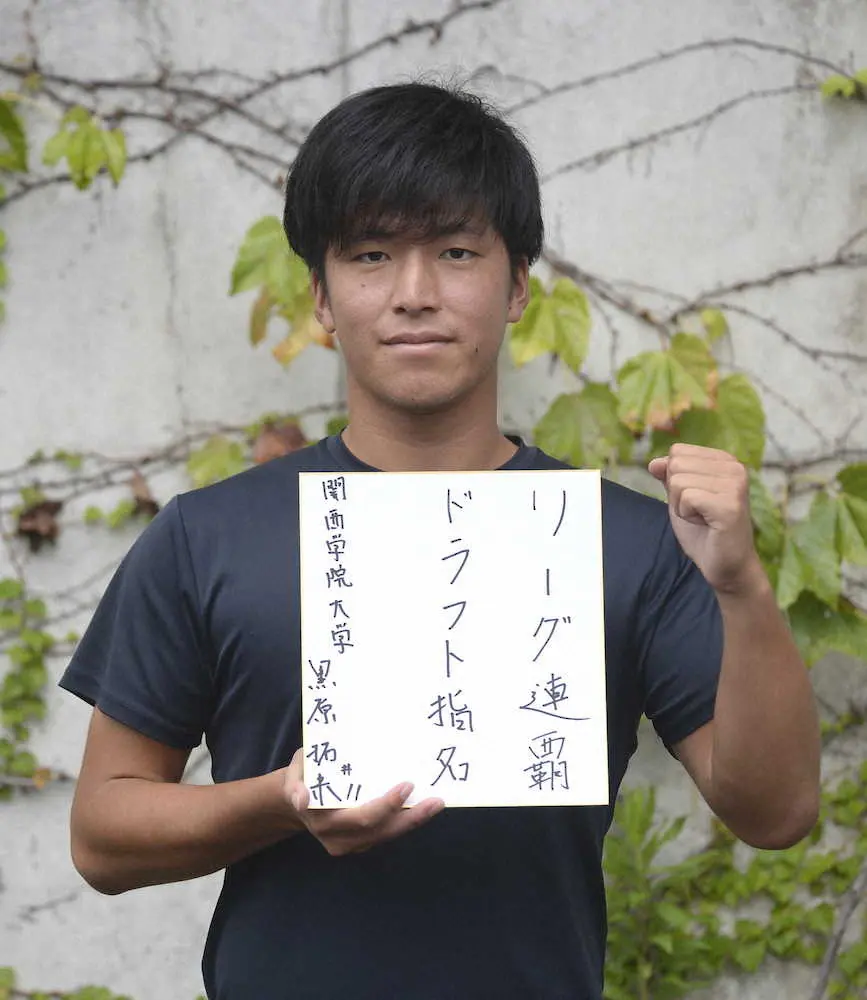 リーグ連覇
ドラフト指名
関西学院大学 黒原拓未 #11